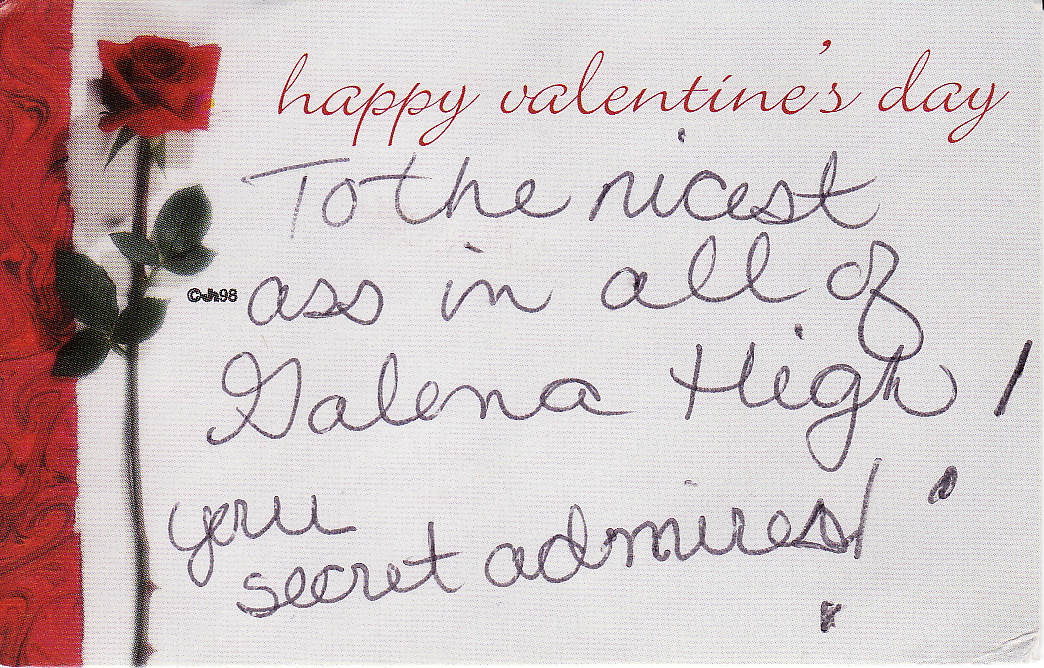 happy valentine's day
To the nicest
ass in all of
©Jh98
Galena High!
your
secret admires!